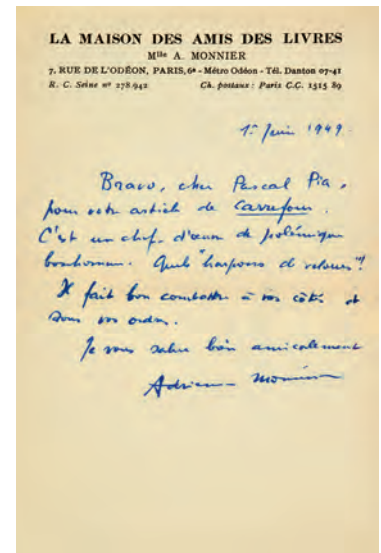 LA MAISON DES AMIS DES LIVRES
Mlle A. MONNIER
7, RUE DE L'ODÉON, PARIS, 6e - Métro Odéon - Tél. Danton 07-41
R. C. Seine nº 278.942 Ch. postaux : Paris C.C. 1515 89
1er Juin 1949.
Bravo, cher Pascal Pia,
pour votre article de Carrefour.
C'est un chef-d'œuvre de polémique
bonhomme. Quels "harpons de velours"!
Il fait bon combattre à vos côtés et
sous vos ordres.
Je vous salue bien amicalement
Adrienne Monnier